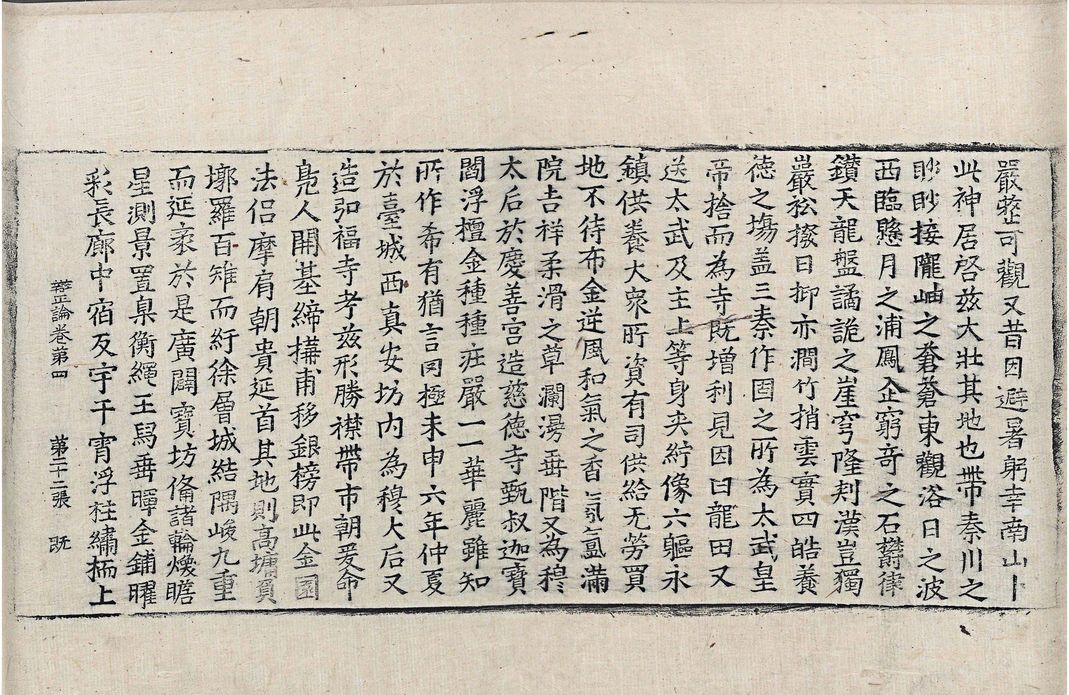 嚴整可觀又昔因避暑躬幸南山卜
此神居啓茲大壯其地也帶秦川之
眇眇接隴岫之蒼蒼東觀浴日之波
西臨懸月之浦鳳企窮竒之石欝律
鑚天龍盤譎詭之崖穹隆刾漢豈獨
嚴松掞日抑亦澗竹捎雲實四皓養
德之塲盖三秦作固之所為太武皇
帝捨而為寺既增利見因曰龍田又
送太武及主上等身夹紵像六軀永
鎮供養大衆所資有司供給无勞買
地不待布金逆風和氣之香氛氳滿
院吉祥柔滑之草瀾漫垂階又為穆
太后於慶善宫造慈德寺甄叔迦寶
閻浮檀金種種庄嚴一一華麗雖知
所作希有猶言罔極未申六年仲夏
於臺城西真安坊内為穆大后又
造弘福寺考茲形勝襟帶市朝爰命
鳧人開基締搆甫移銀榜即此金園
法侣摩肩朝貴延首其地則高墉負
墎羅百雉而紆徐層城結隅峻九重
而延袤於是廣闢寶坊俻諸輪煥瞻
星測景置臬衡繩玉舄垂暉金鋪曜
彩長廊中宿反宇干霄浮柱繡栭上
辯正論卷第四 第二十二張 既